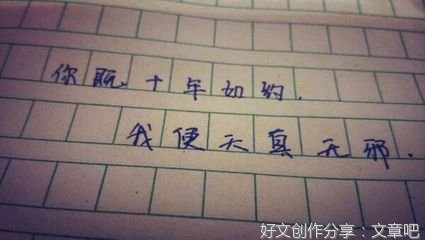 你既十年如约.
我便天真无邪.
好文创作分享：文章吧